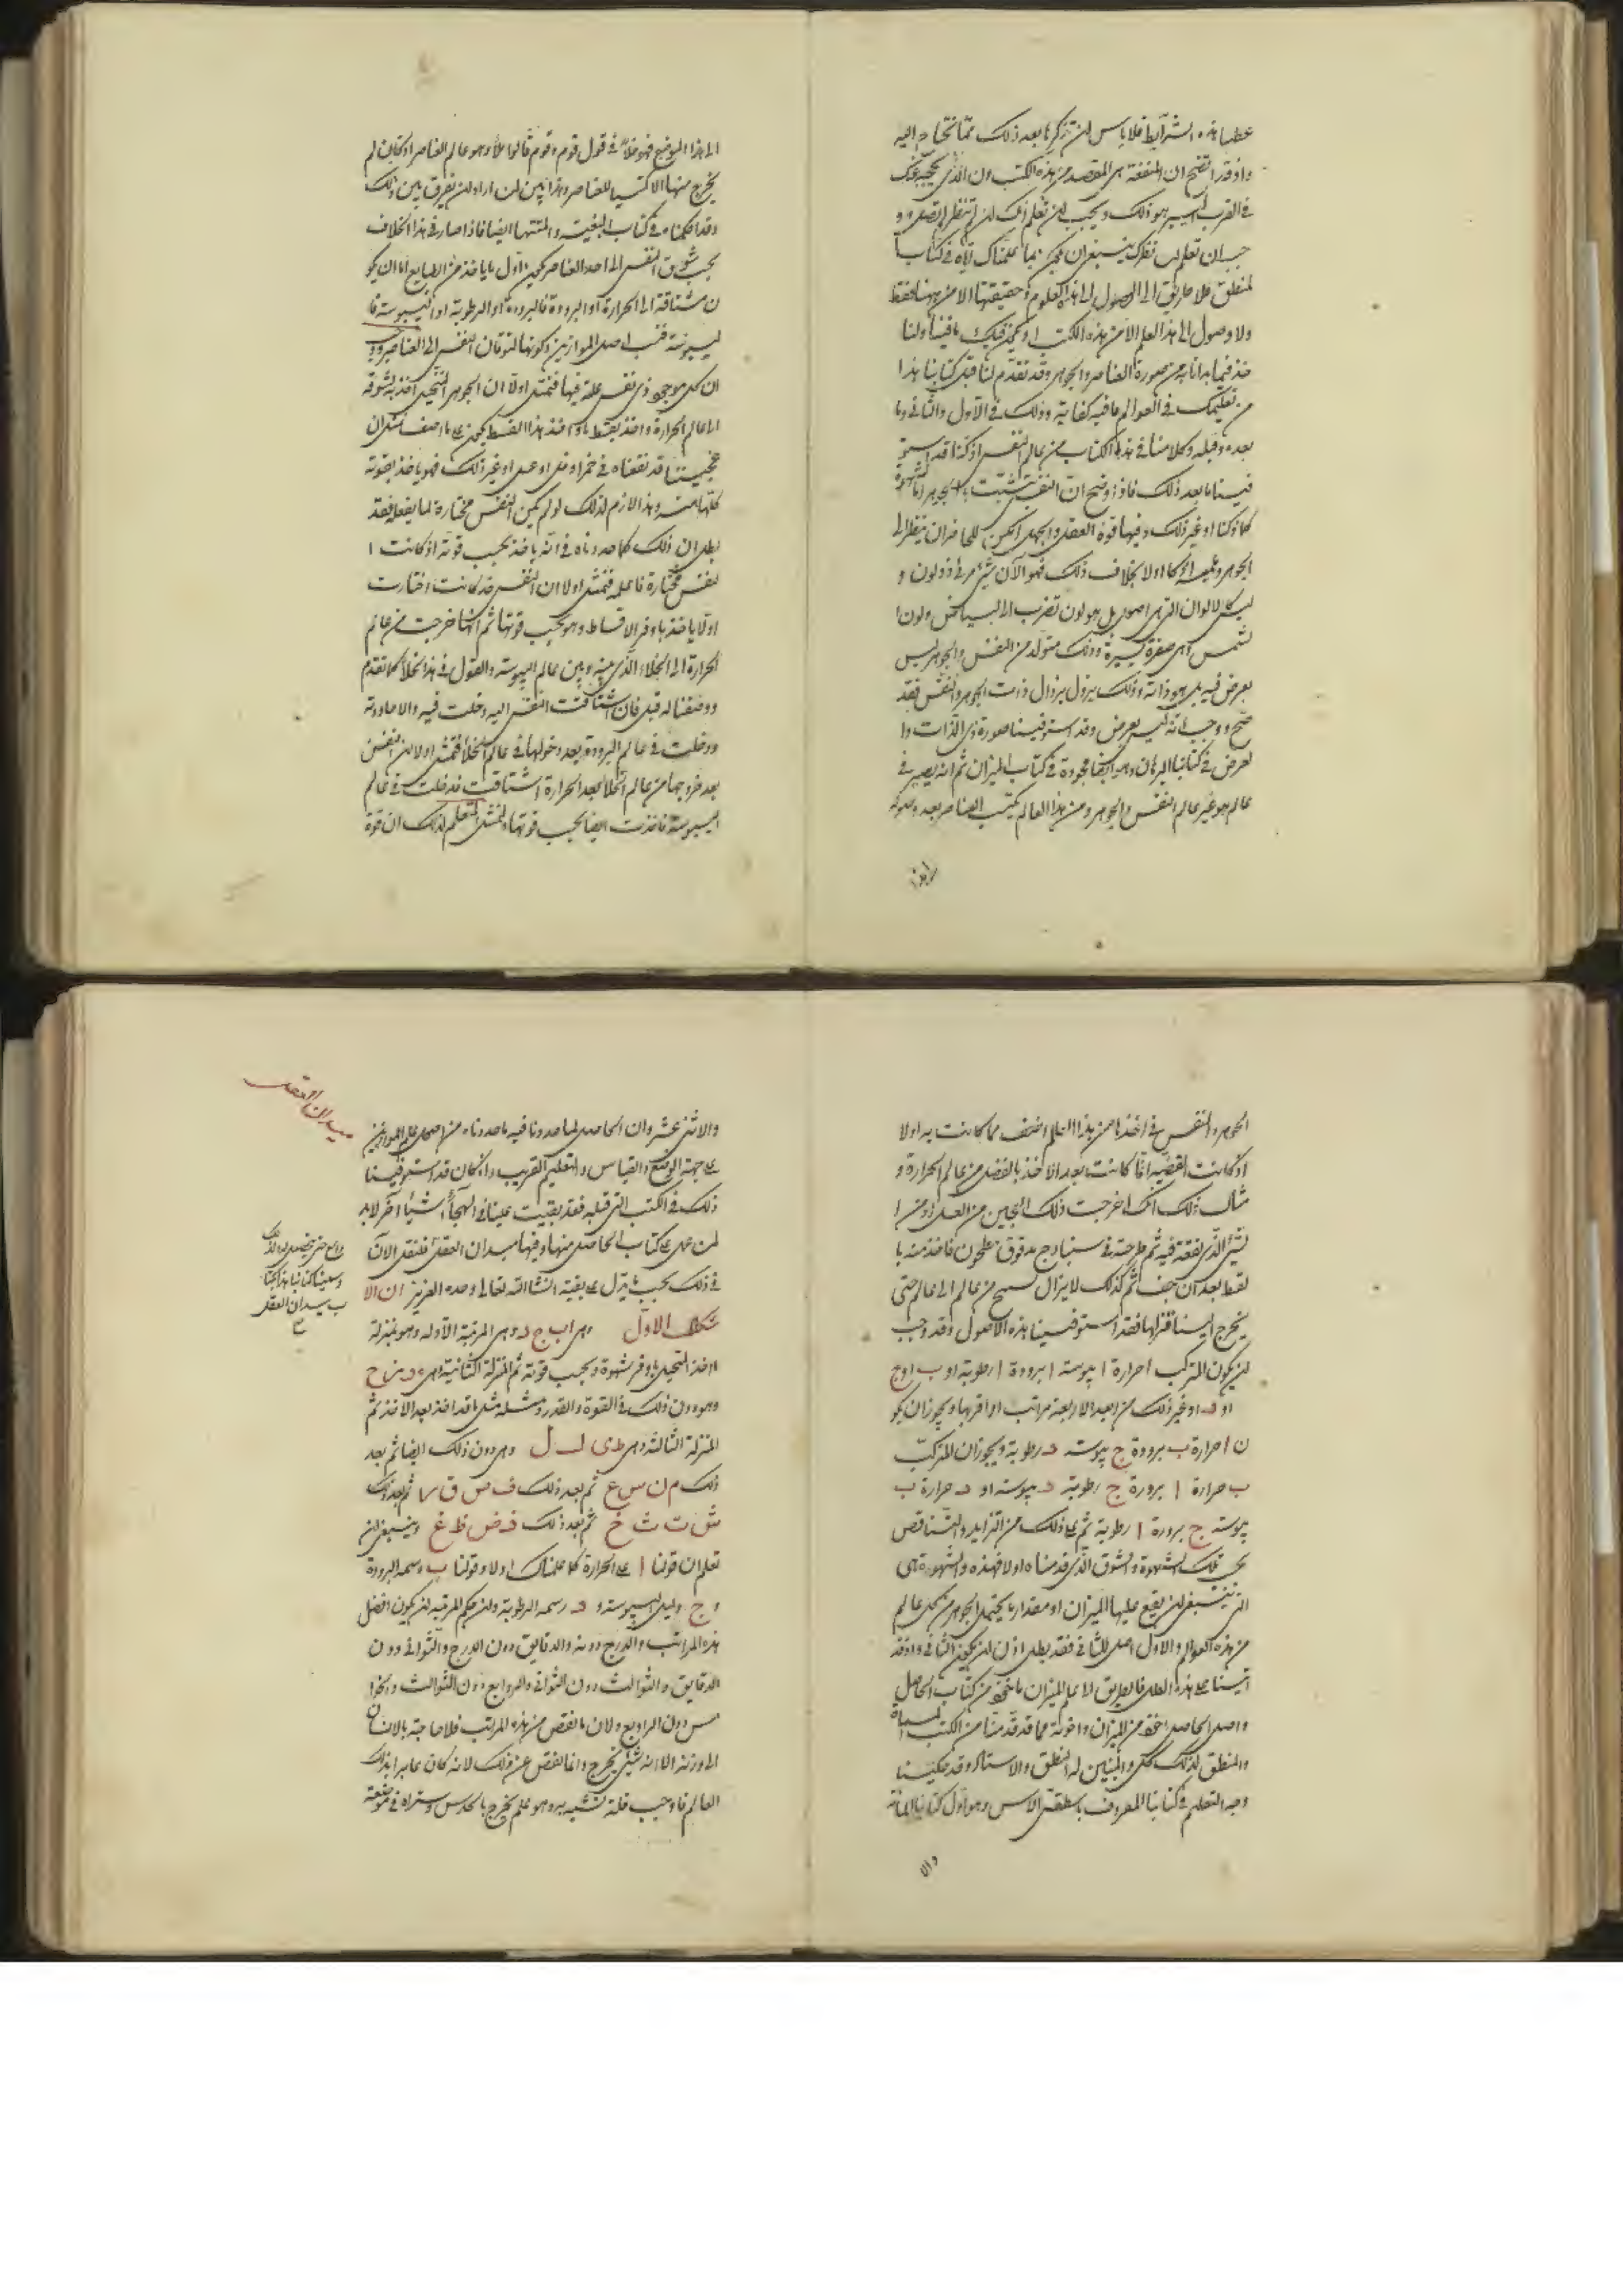 عطيا هذه الشرايط فلا باس ان نذكر ما بعد ذلك مما تحتاج اليه
واذ قد اتضح ان المنفعة هى المقصد من هذه الكتب وان الذى
فى القرب اليسير هو ذلك ويجب ان تعلم انك ان لم تنظر
جب ان تعلم نظرك ينبغى ان يكون بما علمناك اياه فى كتاب ا
لمنطق فلا طريق الى الوصول الى هذه العلوم وحقيقتها الا من جهتها فقط
ولا وصول الى هذا العلم الا من هذه الكتب
خذ فيما بدانا به من صورة العناصر والجوهر وقد تقدم لنا قبل كتابنا هذا
من تعليمك فى العوالم ما فيه كفاية وذلك فى الاول والثانى وما
بعده وقبله وكلامنا فى هذا الكتاب من عالم النفس اذ كنا قد استو
فينا ما بعد ذلك فاذ اوضح ان النفس تشبثت بالجوهر اما لشهوة
كما ذكنا او غير ذلك وفيها قوة العقل والجهل امكن للحاضر ان ينظر الى
الجوهر بخلاف ذلك فهو الآن شىء مرئى ذو لون و
ليس كالالوان التى هى اصول بل هو لون تضرب الى البياض ولون ا
لشمس اى صفرة يسيرة وذلك متولد من النفس والجوهر ليس
بعرض فيه بل هو ذاته وذلك يزول بزوال ذات الجوهر والنفس فقد
صح ووجب انه ليس بعرض وقد استوفينا صورة ذى الذات وا
لعرض فى كتابنا البرهان وهو ايضا مجودة فى كتاب الميزان ثم انه يصير فى
عالم هو غير عالم النفس والجوهر ومن هذا العالم يكتسب العناصر بعد وصوله
الى هذا
الى هذا الموضع فهو خلاء فى قول قوم وقوم قالوا ملأ وهو عالم العناصر اذ كان لم
يخرج منها الا مكتسبا للعناصر وهذا بين لمن اراد ان يفرق بين ذلك
وقد احكمناه فى كتاب البغيته والمنتهى ايضا فاذا صار فى هذا الخلاف
بحسب شوق النفس الى احد العناصر يكون اول ما ياخذ من الطبايع اما ان يكو
ن مشتاقة الى الحرارة او البرودة فالبرودة او الرطوبة او اليبوسة فا
ليبوسة فمن اصل الموازين وكونها لتوقان النفس الى العناصر ووجب
ان كل موجود ذى نفس علة فيها فنمثل اولا ان الجوهر المتخيل اخذ به شوقه
الى عالم الحرارة واخذ بقسط ما واخذ هذا القسط يكون على ما اصف مثل ان
عجينا قد نقعناه فى خمر او خل او عسل او غير ذلك فهو ياخذ بقوته
كلها منه وهذا لازم لذلك لو لم تكن النفس مختارة لما يفعله فقد
بطل ان ذلك كما حددناه فى انه ياخذ بحسب قوته اذ كانت ا
لنفس مختارة فاعلة فنمثل اولا ان النفس قد كانت اختارت
اولا ياخذ باوفر الاقساط وهو بحسب قوتها ثم انها خرجت من عالم
الحرارة الى الخلاء الذى بينه وبين عالم اليبوسة والقول فى هذا الخلأ كما تقدم
ووصفنا له قبل فان اشتاقت النفس اليه دخلت فيه والا
ودخلت فى عالم البرودة بعد دخولها فى عالم الخلأ فنمثل اولا ان النفس
بعد خروجها من عالم الخلأ بعد الحرارة اشتاقت قد دخلت فى عالم
اليبوسة فاخذت ايضا بحسب قوتها وليمثل المتعلم لذلك ان قوة
الجوهر والنفس فى اخذها من هذا العالم اضعف مما كانت به اولا
اذ كانت انما كانت بعد الاخذ بالفضل من عالم الحرارة و
مثال ذلك انك اخرجت ذلك العجين من العسل او من ا
لشىء الذى نقعته فيه ثم طرحته فى مدقوق مطحون فاخذ منه با
لقط بعد ان جف ثم كذلك لا يزال يسبح من عالم الى عالم حتى
يخرج الينا فقد استوفينا هذه الاصول وقد وجب
ان يكون المركب ا حرارة ا يبوسة ا برودة ا رطوبة او ب او ج
او د او غير ذلك من ابعد الاربعة مراتب او اقربها ويجوز ان يكو
ن ا حرارة ب برودة ج يبوسة د رطوبة ويجوز ان المركب
ب حرارة ا برودة ج رطوبة د يبوسة او د حرارة ب
يبوسة ج برودة ا رطوبة ثم على ذلك من التزايد والتناقص
بحسب تلك الشهوة والشوق الذى قدمناه اولا فهذه والشهوة هى
التى ينبغى ان يقع عليها الميزان او مقدار ما يحتمل الجوهر من كل عالم
من هذه العوالم والاول اصل للثانى فقد بطل اذن ان يكون الثانى واذ قد
اتينا على هذه العلل فالطريق الى علم الميزان ماخوذ من كتاب الحاصل
واصل الحاصل اخذ من الميزان واخوته مما قد قدمنا من الكتب المسماة
والمنطق لذلك والمبين له المنطق والاستاذ وقد حكينا
وجه التعليم فى كتابنا المعروف باسطقس الاس وهو اول كتابنا المائة
والا
ميدان العقل
والاثنى عشر وان الحاصل لما حددنا فيه ما حددناه من اصل علم الموازين
على جهة الوضع والقياس والتعليم القريب واذ كان قد استوفينا
ذلك فى الكتب التى قبله فقد بقيت علينا فى الهجاء اشياء آخر لابد
لمن عمل على كتاب الحاصل منها وفيها ميدان العقل فلنقل الآن
فى ذلك بحسب ما نزل على بقية انشاالله تعالى وحده العزيز ان الا
شكل الاول وهى ا ب ج د وهى المرتبة الاولة وهو بمنزلة
اخذ المتخيل باوفر شهوة وبحسب قوته ثم المنزلة الثانية وهى ه و ز ح
وهو دون ذلك فى القوة والقدر ومثله مثل ما قد اخذ بعد الاخذ ثم
المنزلة الثالثة وهى ط ى ك ل وهى دون ذلك ايضا ثم بعد
ذلك م ن س ع ثم بعد ذلك ف ص ق ر ثم بعد ذلك
ش ت ث خ ثم بعد ذلك ذ ض ظ غ وينبغى ان
تعلم ان قولنا ا على الحرارة كما علمناك اولا وقولنا ب رسمه البرودة
و ج دليل اليبوسة و د رسمه الرطوبة وان حكم المرتبة ان يكون افضل
هذه المراتب والدرج دونه والدقايق دون الدرج والثوانى دون
الدقايق والثوالث دون الثوانى والروابع دون الثوالث والخوا
مس دون الروابع ولان ما نقص من هذه المراتب فلا حاجة بالانسان
الى وزنه الا انه شىء يخرج وانما نقص عن ذلك لانه كان عابرا بذلك
العالم فاوجب قلة تشبثه به وهو علم يخرج بالحدس وستراه فى موضعه
وسمينا كتابنا هذا بكتا
ب ميدان العقل